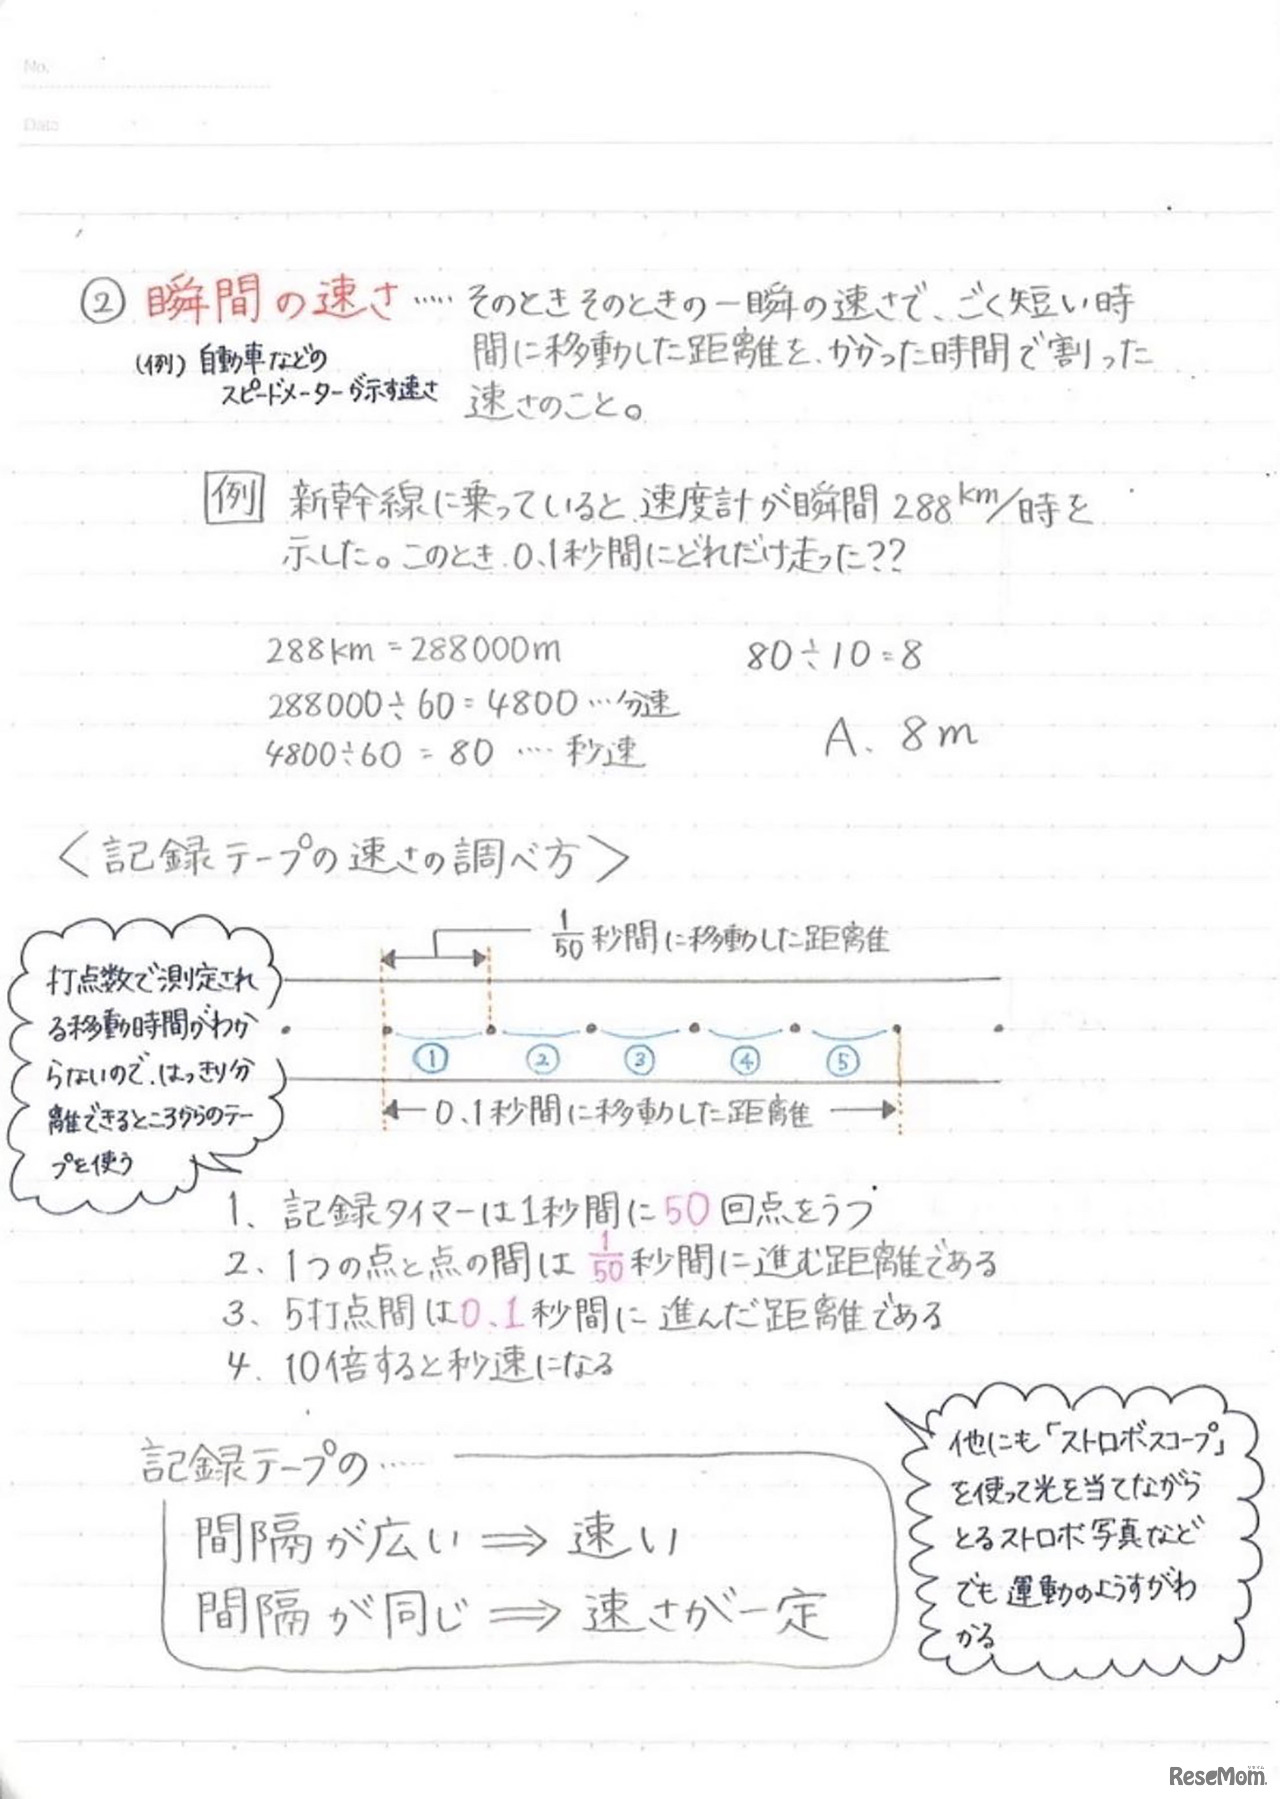 No.
Date
② 瞬間の速さ ‥‥‥ そのときそのときの一瞬の速さで、ごく短い時
間に移動した距離を、かかった時間で割った
速さのこと。
(例) 自動車などの
スピードメーターが示す速さ
例 新幹線に乗っていると、速度計が瞬間 288km/時を
示した。このとき、0.1秒間にどれだけ走った??
288km = 288000m
288000÷60 = 4800 …分速
4800÷60 = 80 …. 秒速
80÷10=8
A. 8m
〈記録テープの速さの調べ方〉
打点数で測定され
る移動時間がわか
らないので、はっきり分
離できるところからのテー
プを使う
1/50 秒間に移動した距離
① ② ③ ④ ⑤
0.1秒間に移動した距離
1、記録タイマーは1秒間に50回点をうつ
2、1つの点と点の間は 1/50 秒間に進む距離である
3、5打点間は0.1秒間に進んだ距離である
4、10倍すると秒速になる
記録テープの……
間隔が広い ⇒ 速い
間隔が同じ ⇒ 速さが一定
他にも「ストロボスコープ」
を使って光を当てながら
とるストロボ写真など
でも運動のようすがわ
かる
ReseMom